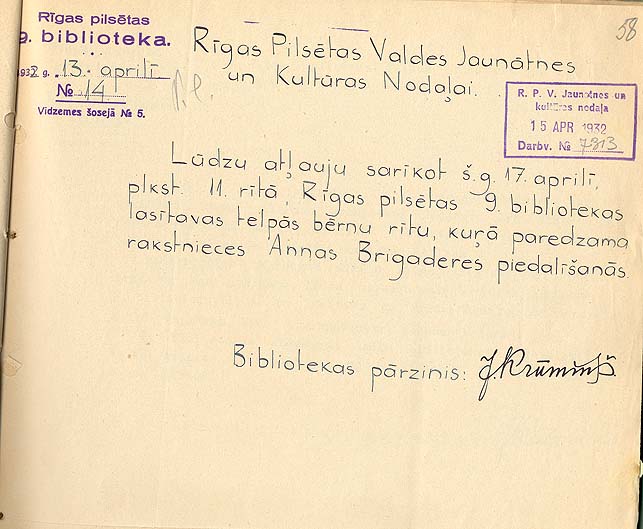 Rīgas pilsētas
9. biblioteka.
1932 g. 13. aprilī
№ 14
Vidzemes šosejā № 5.
58
Rīgas Pilsētas Valdes Jaunātnes
un Kultūras Nodaļai.
R. P. V. Jaunatnes un
kultūras nodaļa
15 APR 1932
Darbv. № 7313
Lūdzu atļauju sarīkot š.g. 17. aprilī,
plkst. 11. rītā, Rīgas pilsētas 9. bibliotekas
lasītavas telpās bērnu rītu, kuŗā paredzama
rakstnieces Annas Brigaderes piedalīšanās.
Bibliotekas pārzinis: J. Krūmiņš.